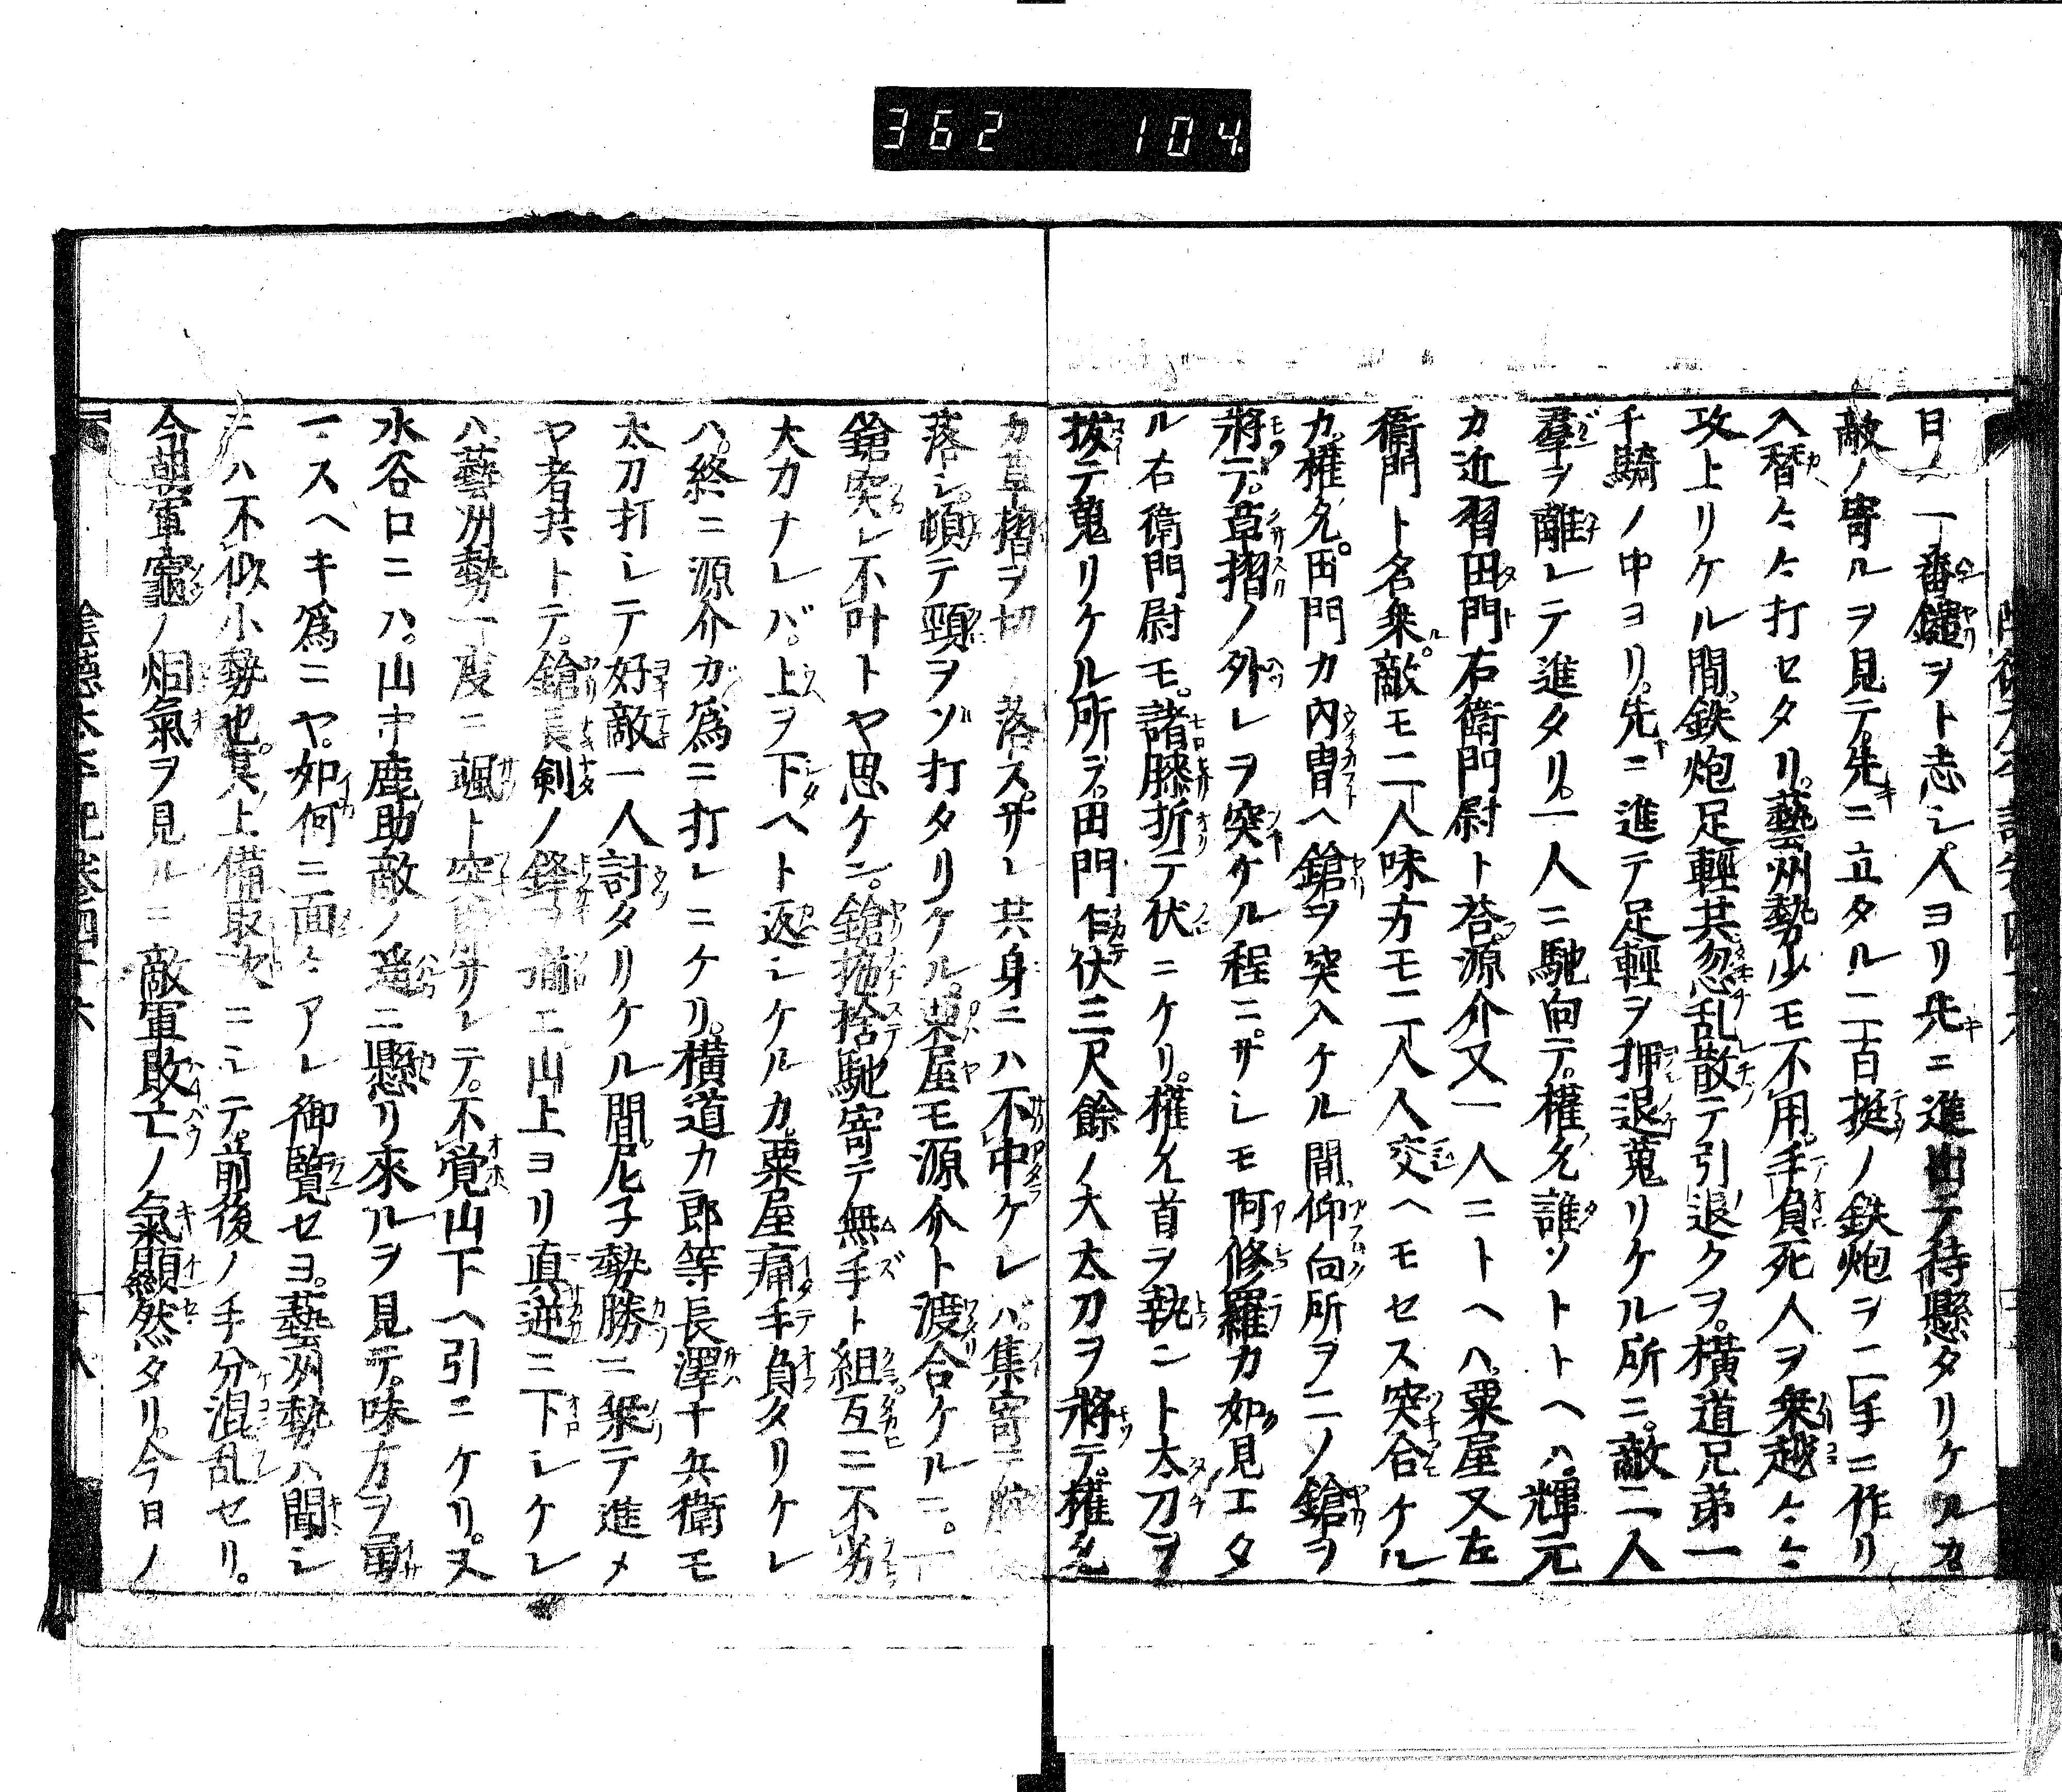 362 104
日ノ一番鑓ヲト志シ。人ヨリ先ニ進出テ待懸タリケルカ
敵ノ寄ルヲ見テ。先ニ立タル二百挺ノ鉄炮ヲ二手ニ作リ
入替々々打セタリ。藝州勢少モ不用。手負死人ヲ乗越々々
攻上リケル間。鉄炮足輕共忽乱散テ引退クヲ。横道兄弟一
千騎ノ中ヨリ。先ニ進テ足輕ヲ押退蒐リケル所ニ。敵二人
羣ヲ離レテ進タリ。一人ニ馳向テ。權允誰ソトトヘハ。輝元
カ近習田門右衛門尉ト荅。源介又一人ニトヘハ。粟屋又左
衛門ト名乗ル。敵モ二人味方モ二人人交ヘモセス突合ケル
カ。權允。田門カ內冑ヘ鎗ヲ突入ケル間。仰向所ヲ二ノ鎗ヲ
將テ。草摺ノ外レヲ突ケル程ニ。サシモ阿修羅カ如ク見エタ
ル右衛門尉モ。諸膝折テ伏ニケリ。權允首ヲ執ント太刀ヲ
拔テ蒐リケル所ヲ。田門乍伏三尺餘ノ大太刀ヲ將テ。權允
カ草摺ヲ切落ス。サレ共身ニハ不中ケレバ。集寄テ
落シ。頓テ頸ヲゾ打タリケル。粟屋モ源介ト渡合ケルニ。
鎗突レ不叶トヤ思ケン。鎗抛捨馳寄テ無手ト組。互ニ不劣
大カナレバ。上ヲ下ヘト返シケルカ。粟屋痛手負タリケレ
ハ。終ニ源介カ爲ニ打レニケリ。横道カ郎等長澤千兵衛モ
太刀打シテ好敵一人討タリケル間。尼子勢勝ニ乗テ進メ
ヤ者共トテ。鎗長剣ノ鋒ヲ揃エ山上ヨリ真逆ニ下シケレ
ハ。藝州勢一度ニ颯ト突崩サレテ。不覚山下ヘ引ニケリ。又
水谷口ニハ。山中鹿助敵ノ遥ニ懸リ來ルヲ見テ。味方ヲ勇
一スヘキ爲ニヤ。如何ニ面々アレ御覽セヨ。藝州勢ハ聞シ
ニハ不似小勢也。其上備取次ニシテ。前後ノ手分混乱セリ。
今朝軍竈ノ烟氣ヲ見ルニ敵軍敗亡ノ氣顯然タリ。今日ノ
陰徳太平記巻四十六